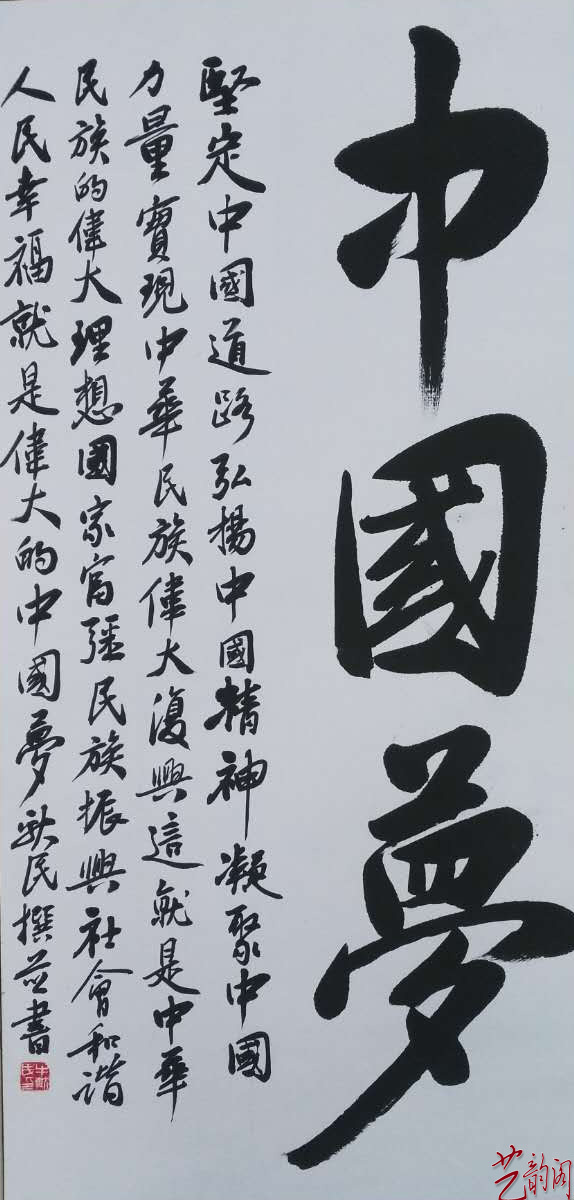 中國夢
堅定中國道路弘揚中國精神凝聚中國
力量實現中華民族偉大復興這就是中華
民族的偉大理想國家富强民族振興社會和谐
人民幸福就是偉大的中國夢 民撰並書
艺韵阁